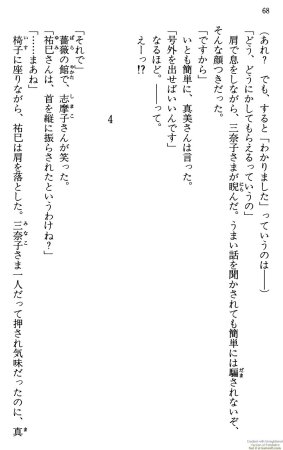 68
(あれ? でも、すると「わかりました」っていうのは――)
「どう、どうにかしてもらえるっていうの」
肩で息をしながら、三奈子さまが睨んだ。うまい話を聞かされても簡単には騙されないぞ、
そんな顔つきだった。
「ですから」
いとも簡単に、真美さんは言った。
「号外を出せばいいんです」
なるほど。――って。
えーっ!?
4
「それで」
薔薇の館で、志摩子さんが笑った。
「祐巳さんは、首を縦に振らされたというわけね?」
「……まあね」
椅子に座りながら、祐巳は肩を落とした。三奈子さま一人だって押され気味だったのに、真